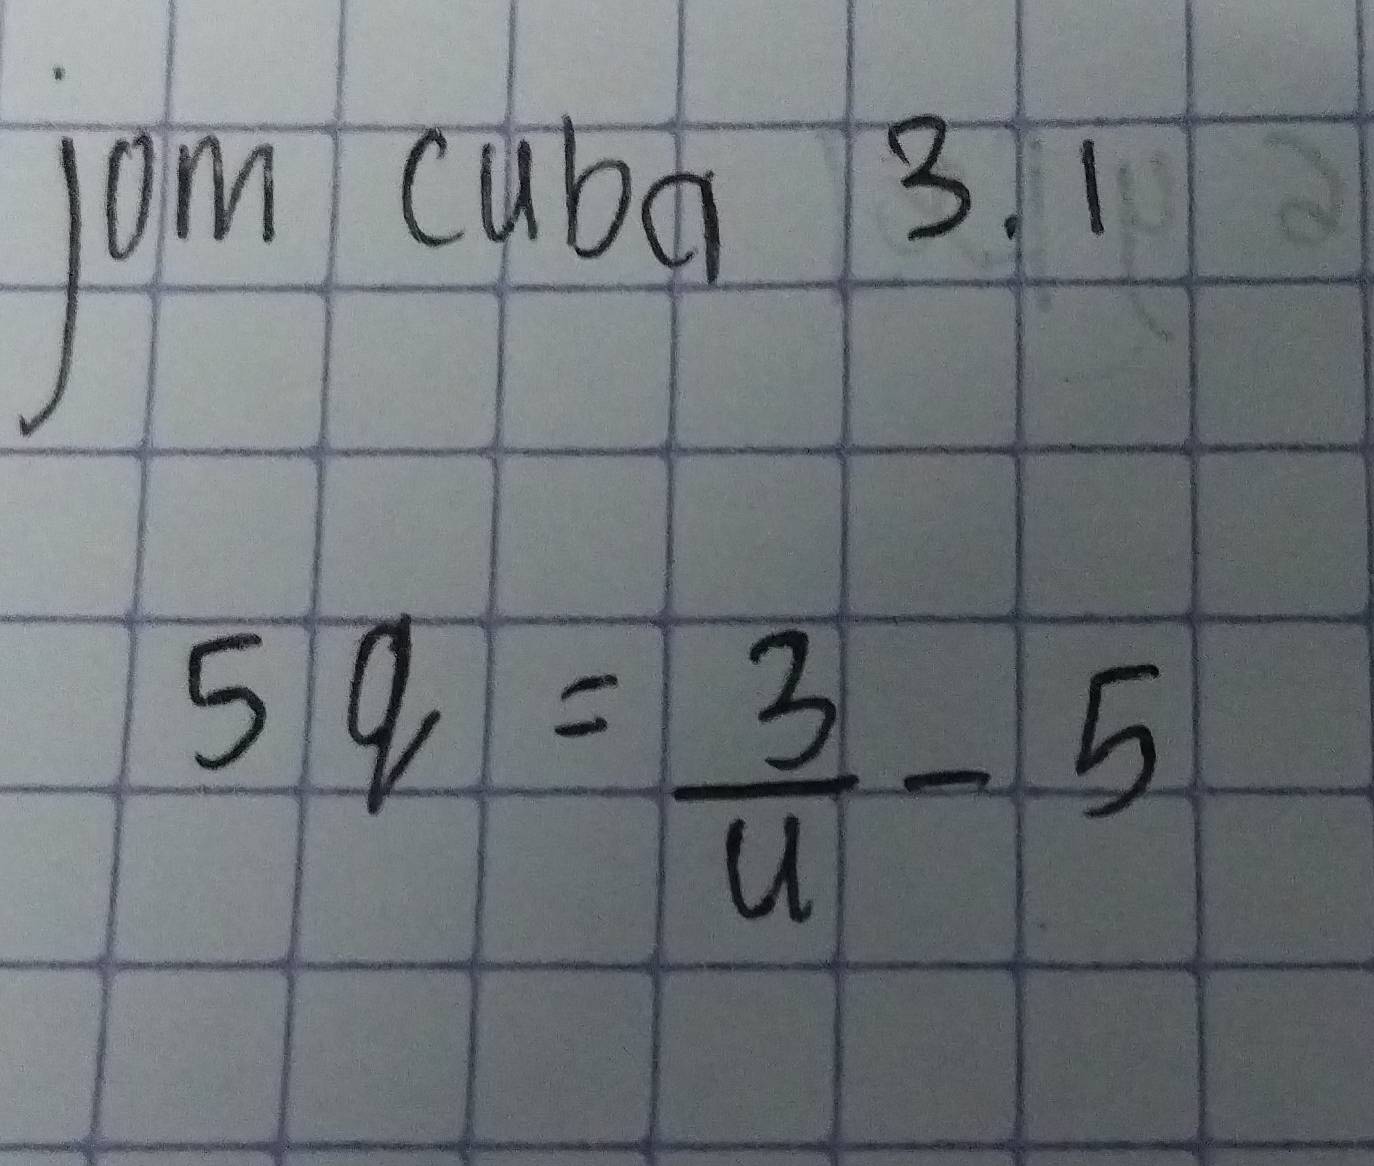 jom cuba 3.1
5q = 3/u - 5